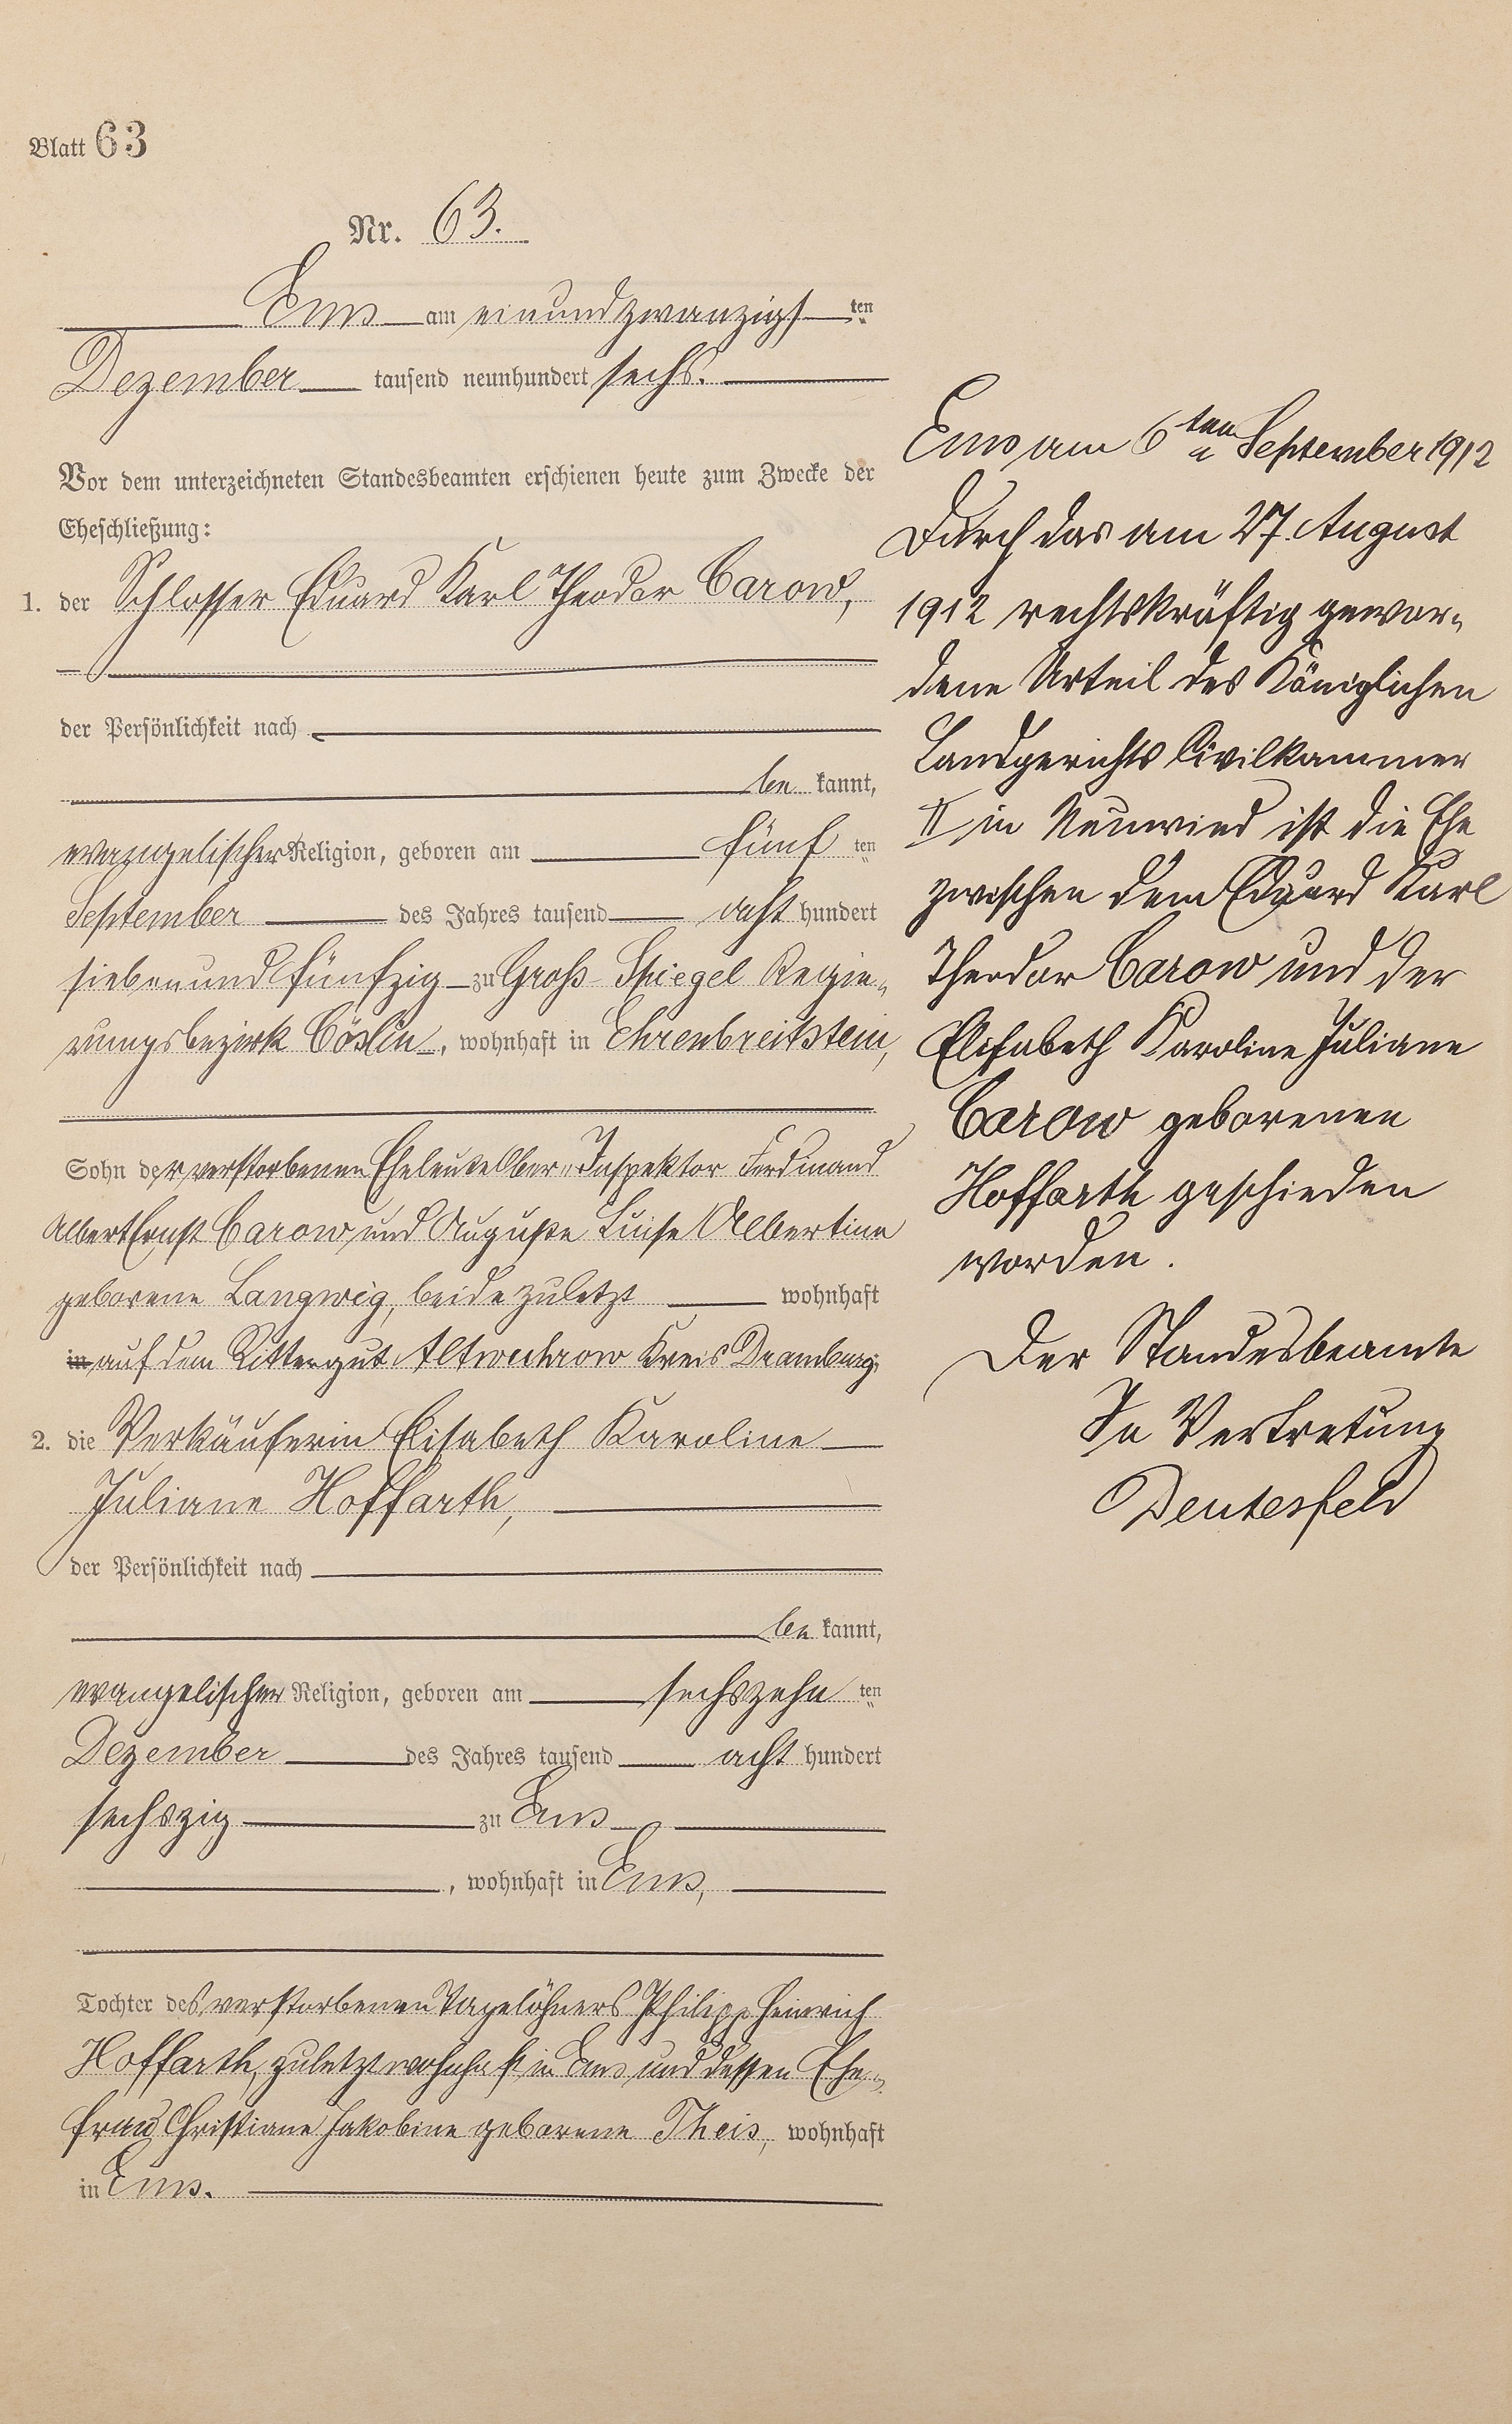 Blatt 63
Nr. 63.
Ems am einundzwanzigst ten
Dezember tausend neunhundert sechs.
Vor dem unterzeichneten Standesbeamten erschienen heute zum Zwecke der
Eheschließung:
1. der Schlosser Eduard Karl Theodor Carow,
der Persönlichkeit nach
be kannt,
evangelischer Religion, geboren am fünf ten
September des Jahres tausend acht hundert
siebenundfünfzig zu Groß-Spiegel Regie-
rungsbezirk Cöslin, wohnhaft in Ehrenbreitstein,
Sohn der verstorbenen Eheleute Ober-Inspektor Ferdinand
Albert Ernst Carow und Auguste Luise Albertine
geborene Langwig, beide zuletzt wohnhaft
in auf dem Rittergut Altwuhrow Kreis Dramburg;
2. die Verkäuferin Elisabeth Karoline
Juliane Hoffarth,
der Persönlichkeit nach
be kannt,
evangelischer Religion, geboren am sechszehn ten
Dezember des Jahres tausend acht hundert
sechszig zu Ems
, wohnhaft in Ems,
Tochter des verstorbenen Tagelöhners Philipp Heinrich
Hoffarth, zuletzt wohnhaft in Ems und dessen Ehe-
frau Christiane Jakobine geborene Theis, wohnhaft
in Ems.
Ems am 6ten September 1912
Durch das am 27. August
1912 rechtskräftig gewor-
dene Urteil des Königlichen
Landgerichts Civilkammer
II in Neuwied ist die Ehe
zwischen dem Eduard Karl
Theodor Carow und der
Elisabeth Karoline Juliane
Carow geborenen
Hoffarth geschieden
worden.
Der Standesbeamte
In Vertretung
Deutesfeld